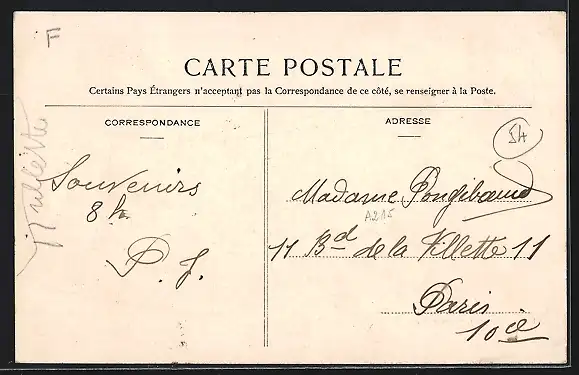 F
CARTE POSTALE
Certains Pays Étrangers n'acceptant pas la Correspondance de ce côté, se renseigner à la Poste.
CORRESPONDANCE
ADRESSE
54
Souvenirs
8 h
P. J.
Madame Pongibaud
A215
11 Bd de la Villette 11
Paris
10e